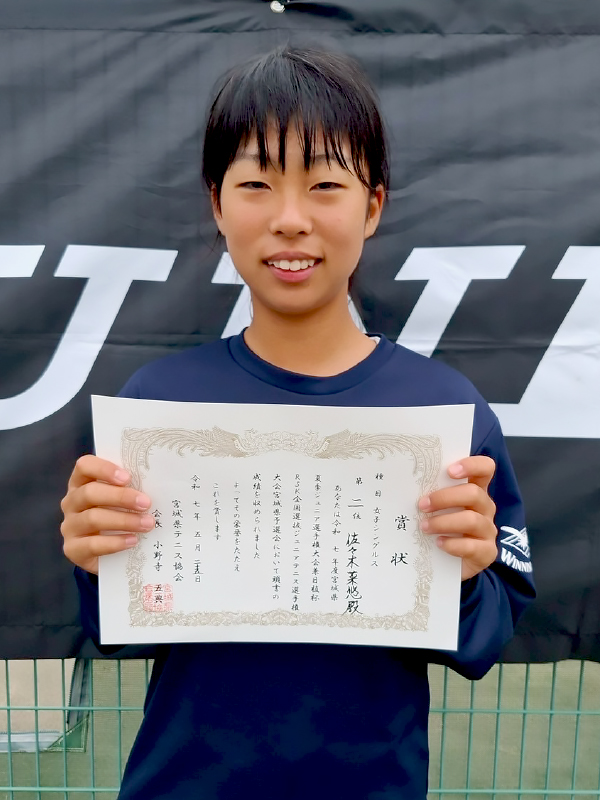 賞状
種目 女子シングルス
第二位 佐々木菜悠殿
あなたは令和七年度宮城県
夏季ジュニア選手権大会兼日植杯
RSK全国選抜ジュニアテニス選手権
大会宮城県予選会において頭書の
成績を収められました
よってその栄誉をたたえ
これを賞します
令和七年五月二十五日
宮城県テニス協会
会長 小野寺五典
WINNIN